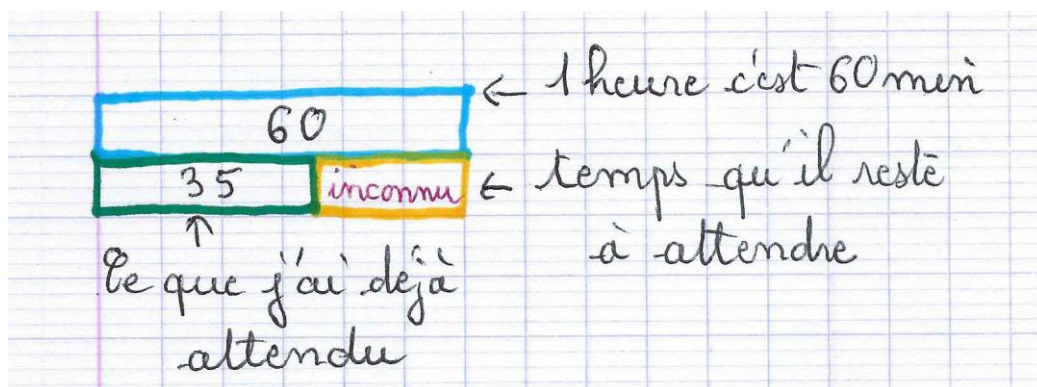 60
← 1 heure c'est 60 min
35
inconnu
← temps qu'il reste
à attendre
Ce que j'ai déjà
attendu